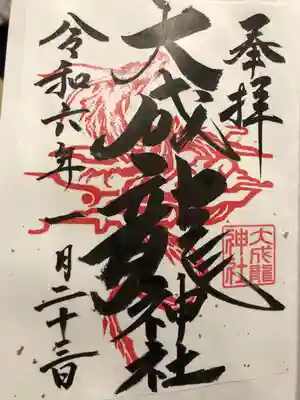 奉拝
大成龍神社
大成龍
神社
令和六年一月二十三日